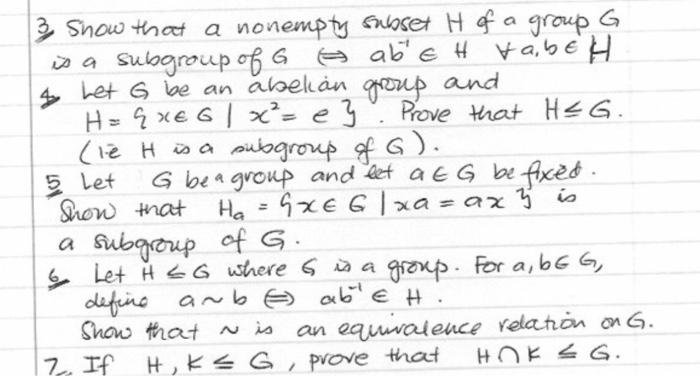 3, Show that a nonempty subset H of a group G
is a subgroup of G ⇔ ab⁻¹ ∈ H ∀ a, b ∈ H
4 Let G be an abelian group and
H = { x ∈ G | x² = e }. Prove that H ≤ G.
(i.e H is a subgroup of G).
5 Let G be a group and let a ∈ G be fixed.
Show that Hₐ = { x ∈ G | xa = ax } is
a subgroup of G.
6, Let H ≤ G where G is a group. For a, b ∈ G,
define a ~ b ⇔ ab⁻¹ ∈ H.
Show that ~ is an equivalence relation on G.
7, If H, K ≤ G, prove that H ∩ K ≤ G.